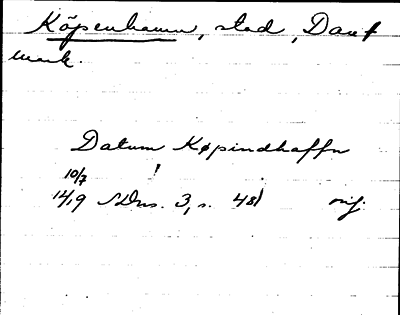 Köpenhamn, stad, Dan
mark.
Datum Køpindhaffn
10/7
1419 SDns. 3, s. 481 orig.